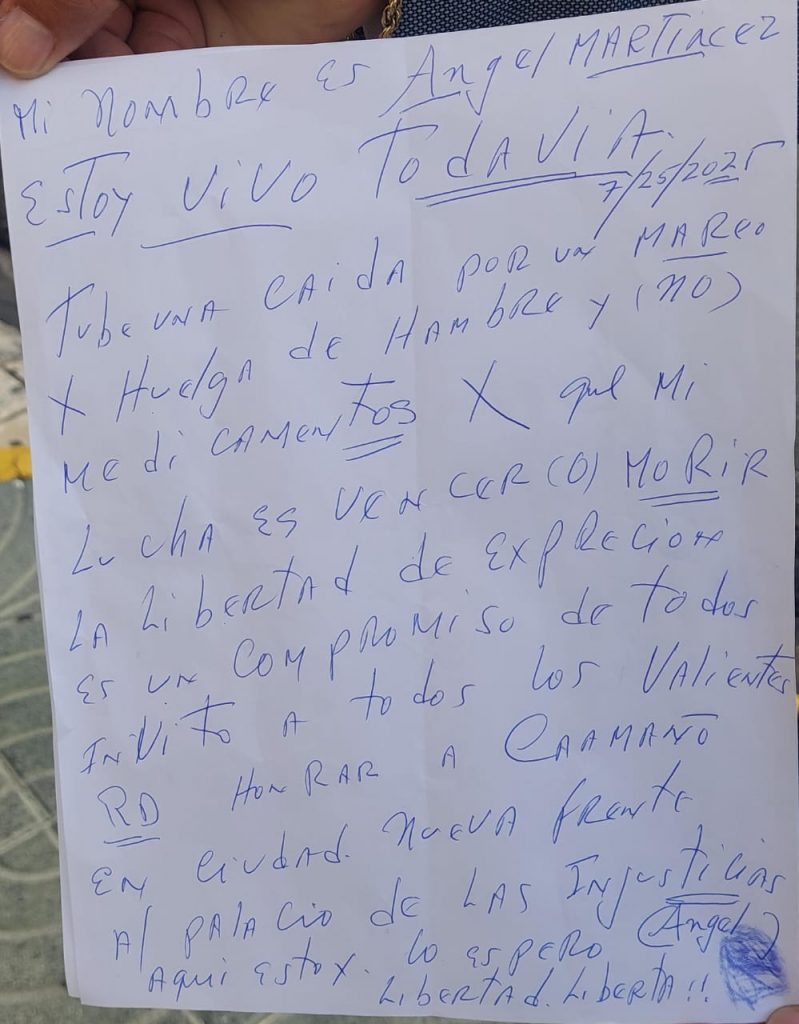 Mi nombre es Angel MARTINEZ
ESTOY VIVO TODAVIA.
7/25/2025
Tube una CAIDA POR UN MAREO
X Huelga de HAMBRE y (NO)
MEDICAMENTOS X que Mi
Lucha es VENCER (O) MORIR
LA LiBERTAd de EXPRECION
ES UN COMPROMISO de todos
INViTo A todos los VALIENTES
RD HONRAR A CAAMAÑO
EN Ciudad. Nueva frente
Al PALACIO de LAS INJUSTICIAS
AQUI ESTOY. lo ESPERO (Angel)
LIBERTAd. LIBERTA!!